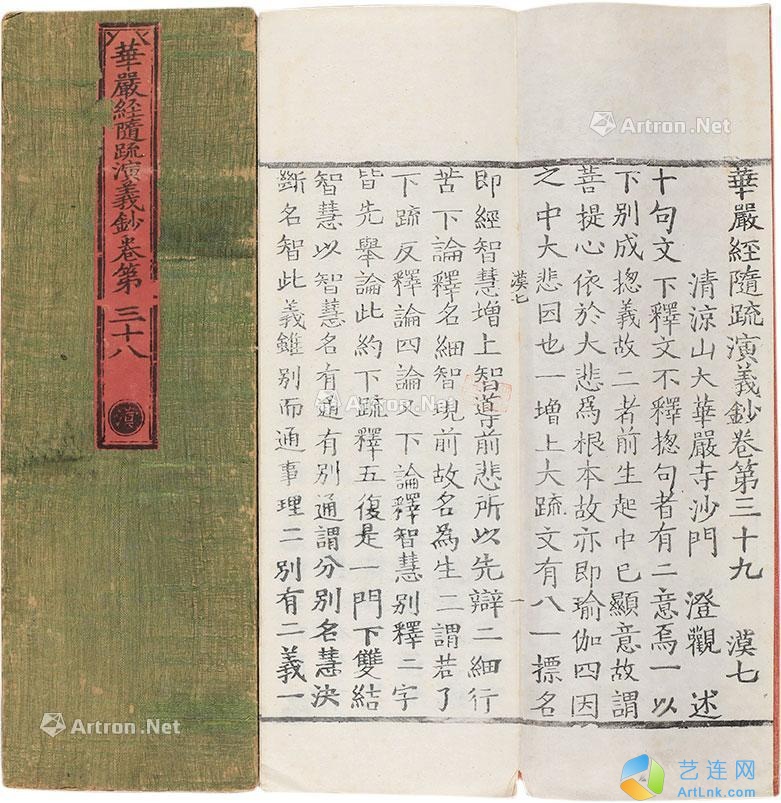 華嚴經隨疏演義鈔卷第三十八
Artron.Net
華嚴經隨疏演義鈔卷第三十九 漠七
清涼山大華嚴寺沙門 澄觀 述
十句文下釋文不釋揔句者有二意焉一以
下別成揔義故二者前生起中已顯意故謂
菩提心依於大悲為根本故亦即瑜伽四因
之中大悲因也一增上大疏文有八一標名
漠七 一
即經智慧增上智導前悲所以先辯二細行
苦下論釋名細智現前故名為生二謂若了
下疏反釋論四論又下論釋智慧別釋二字
皆先舉論此約下疏釋五復是一門下雙結
智慧以智慧名有通有別通謂分別名慧決
斷名智此義雖別而通事理二別有二義一
Artron.Net
Artron.Net
艺连网
ArtLnk.com